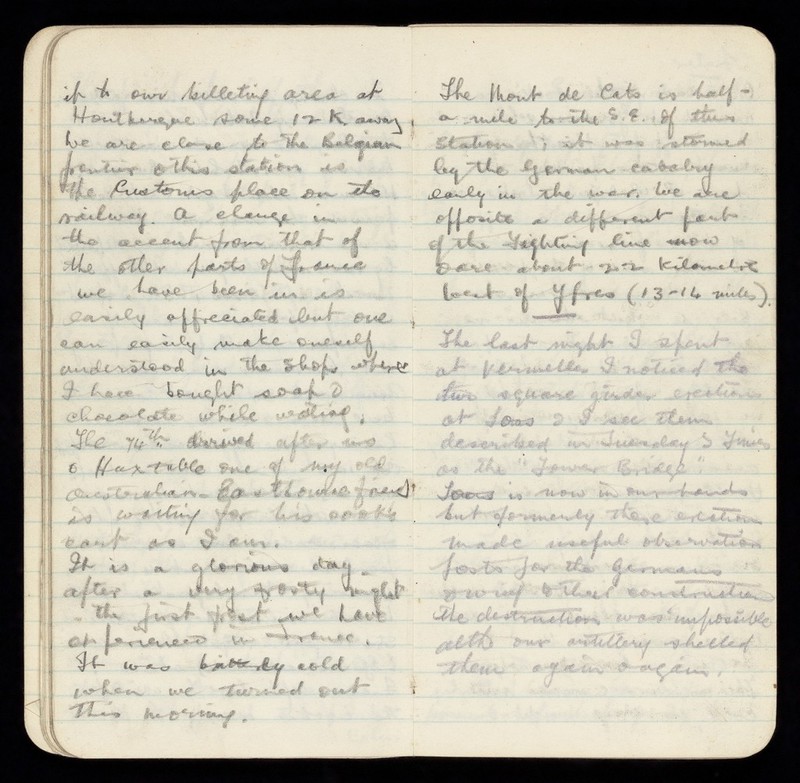 it to our billeting area at
Houtkerque some 12 K away.
We are close to the Belgian
frontier & this station is
the Customs place on the
railway. A change in
the accent from that of
the other parts of France
we have been in is
easily appreciated but one
can easily make oneself
understood in the shops where
I have bought soap &
chocolate while waiting.
The 74th arrived after us
& Huxtable one of my old
Australian - Easthouse friends
is waiting for his cook's
cart as I am.
It is a glorious day
after a very frosty night
- the first frost we have
experienced in France.
It was bitterly cold
when we turned out
this morning.
The Mont de Cats is half-
a mile to the S.E. of this
station; it was stormed
by the German cavalry
early in the war. We are
opposite a different part
of the fighting line now
& are about 22 Kilometre
west of Ypres (13-14 miles).
The last night I spent
at Vermelles I noticed the
two square girder erections
at Loos & I see them
described in Tuesday's Times
as the "Tower Bridge".
Loos is now in our hands
but formerly these erections
made useful observation
posts for the Germans
owing to their construction
the destruction was impossible
altho our artillery shelled
them again & again.